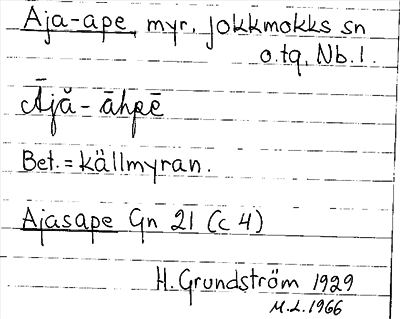 Aja-ape, myr. Jokkmokks sn
o.tg, Nb.l.
Ājă-āhpē
Bet.= källmyran.
Ajasape Gn 21 (c 4)
H. Grundström 1929
M.L. 1966